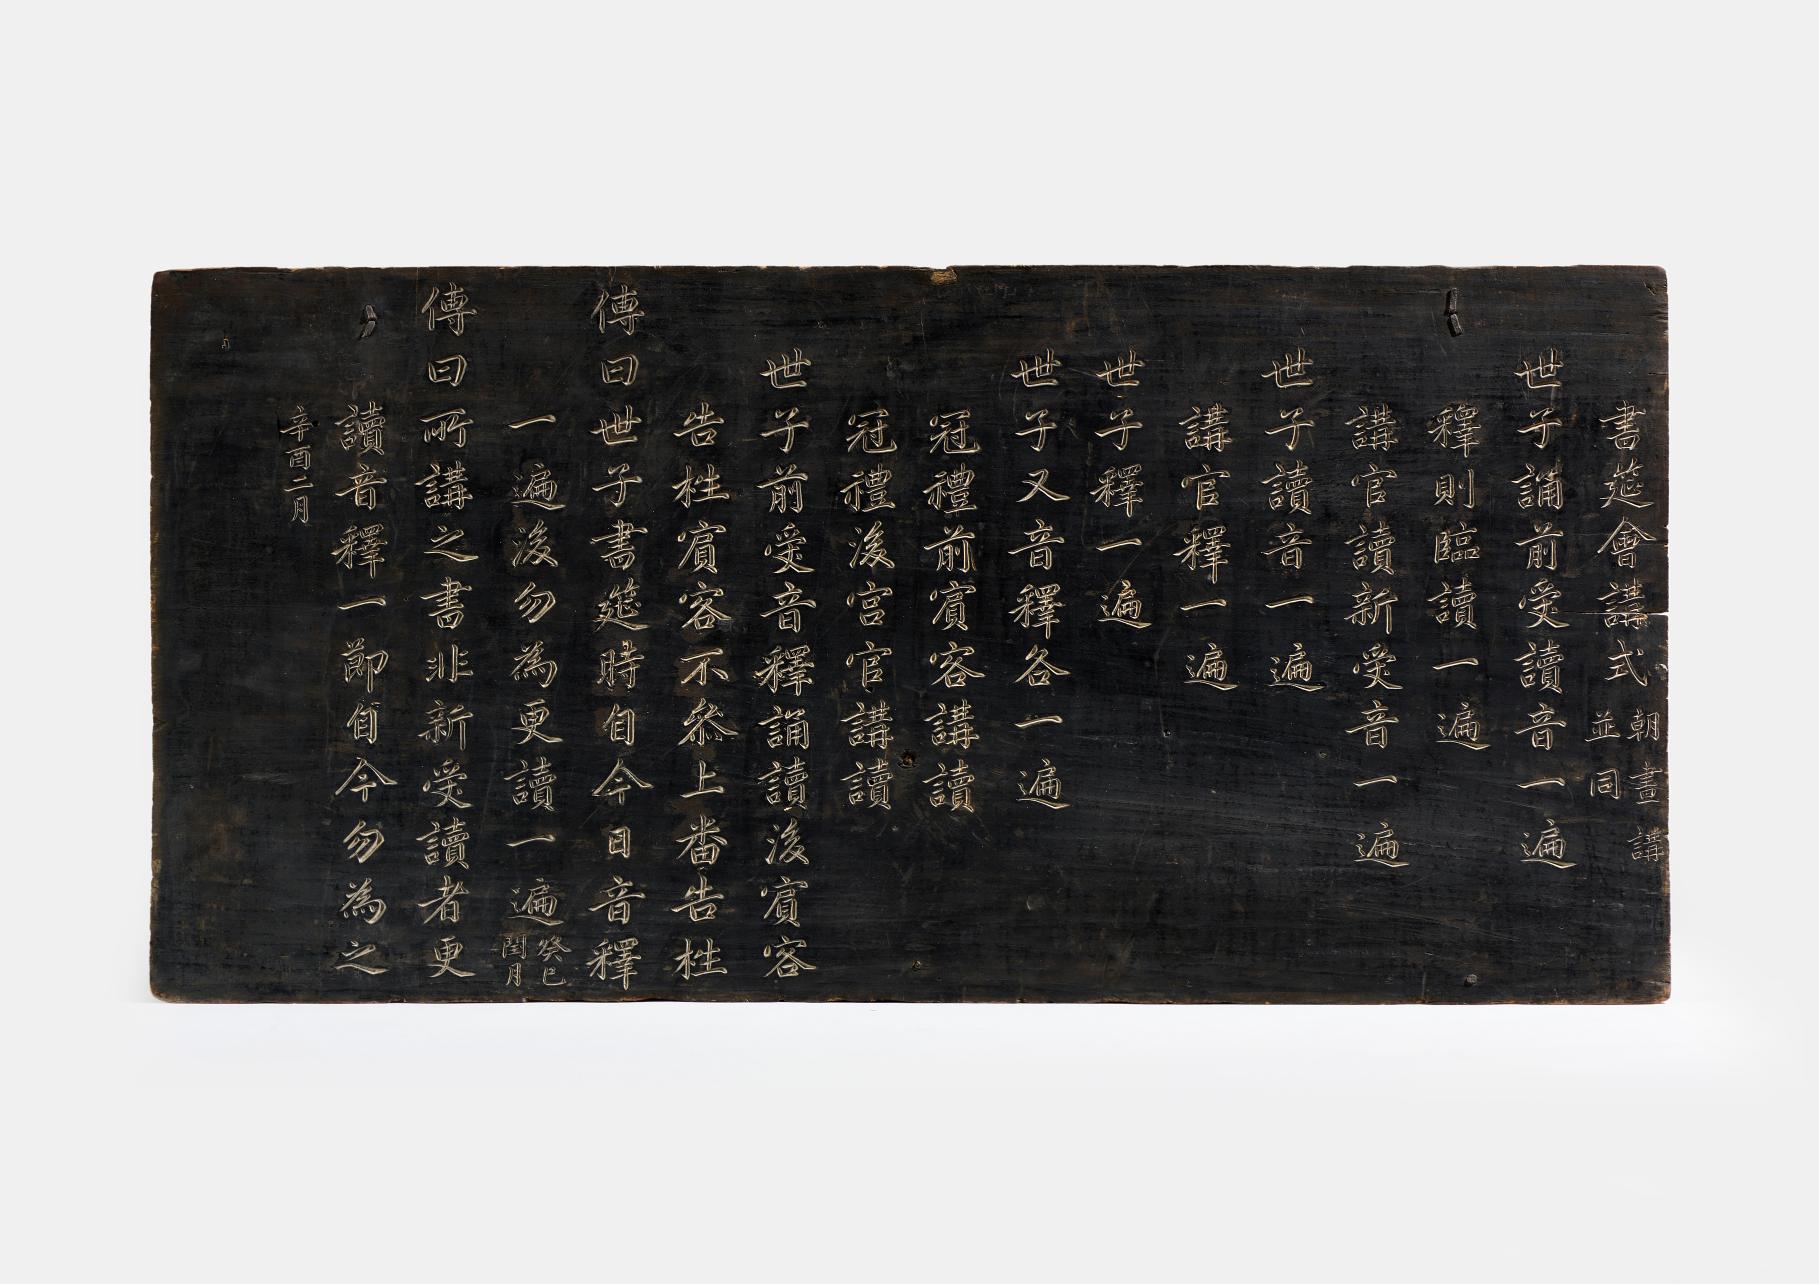 書筵會講式 朝晝講並同
世子誦前受讀音一遍
釋則臨讀一遍
講官讀新受音一遍
世子讀音一遍
講官釋一遍
世子釋一遍
世子又音釋各一遍
冠禮前賓客講讀
冠禮後宮官講讀
世子前受音釋誦讀後賓客
告栍賓客不參上番告栍
傳曰世子書筵時自今日音釋
一遍後勿為更讀一遍 癸巳閏月
傳曰所講之書非新受讀者更
讀音釋一節自今勿為之
辛酉二月